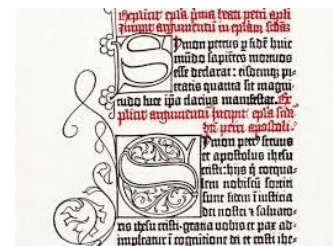 Explicit epla prima beati petri apli
Incipit argumentū in eplam scdaȝ
Symon petrus p̱ fidē huic
mūdo sapiētes mortuos
esse declarat: eisdemqꝫ pi-
etatis quanta sit magni-
tudo luce ip̄a clarius manifestat. Ex-
plicit argumentū Incipit epla scda
bti petri apostoli.
Symon petrꝰ seruus
et apostolus ihesu
cristi: hijs q̄ coequa-
lem nobiscū sortiti
sunt fidem ī iusticia
dei nostri ⁊ saluato-
ris ihesu cristi. gratia vobis et pax ad-
impleatur ī cognitione dei et cristi ihe-